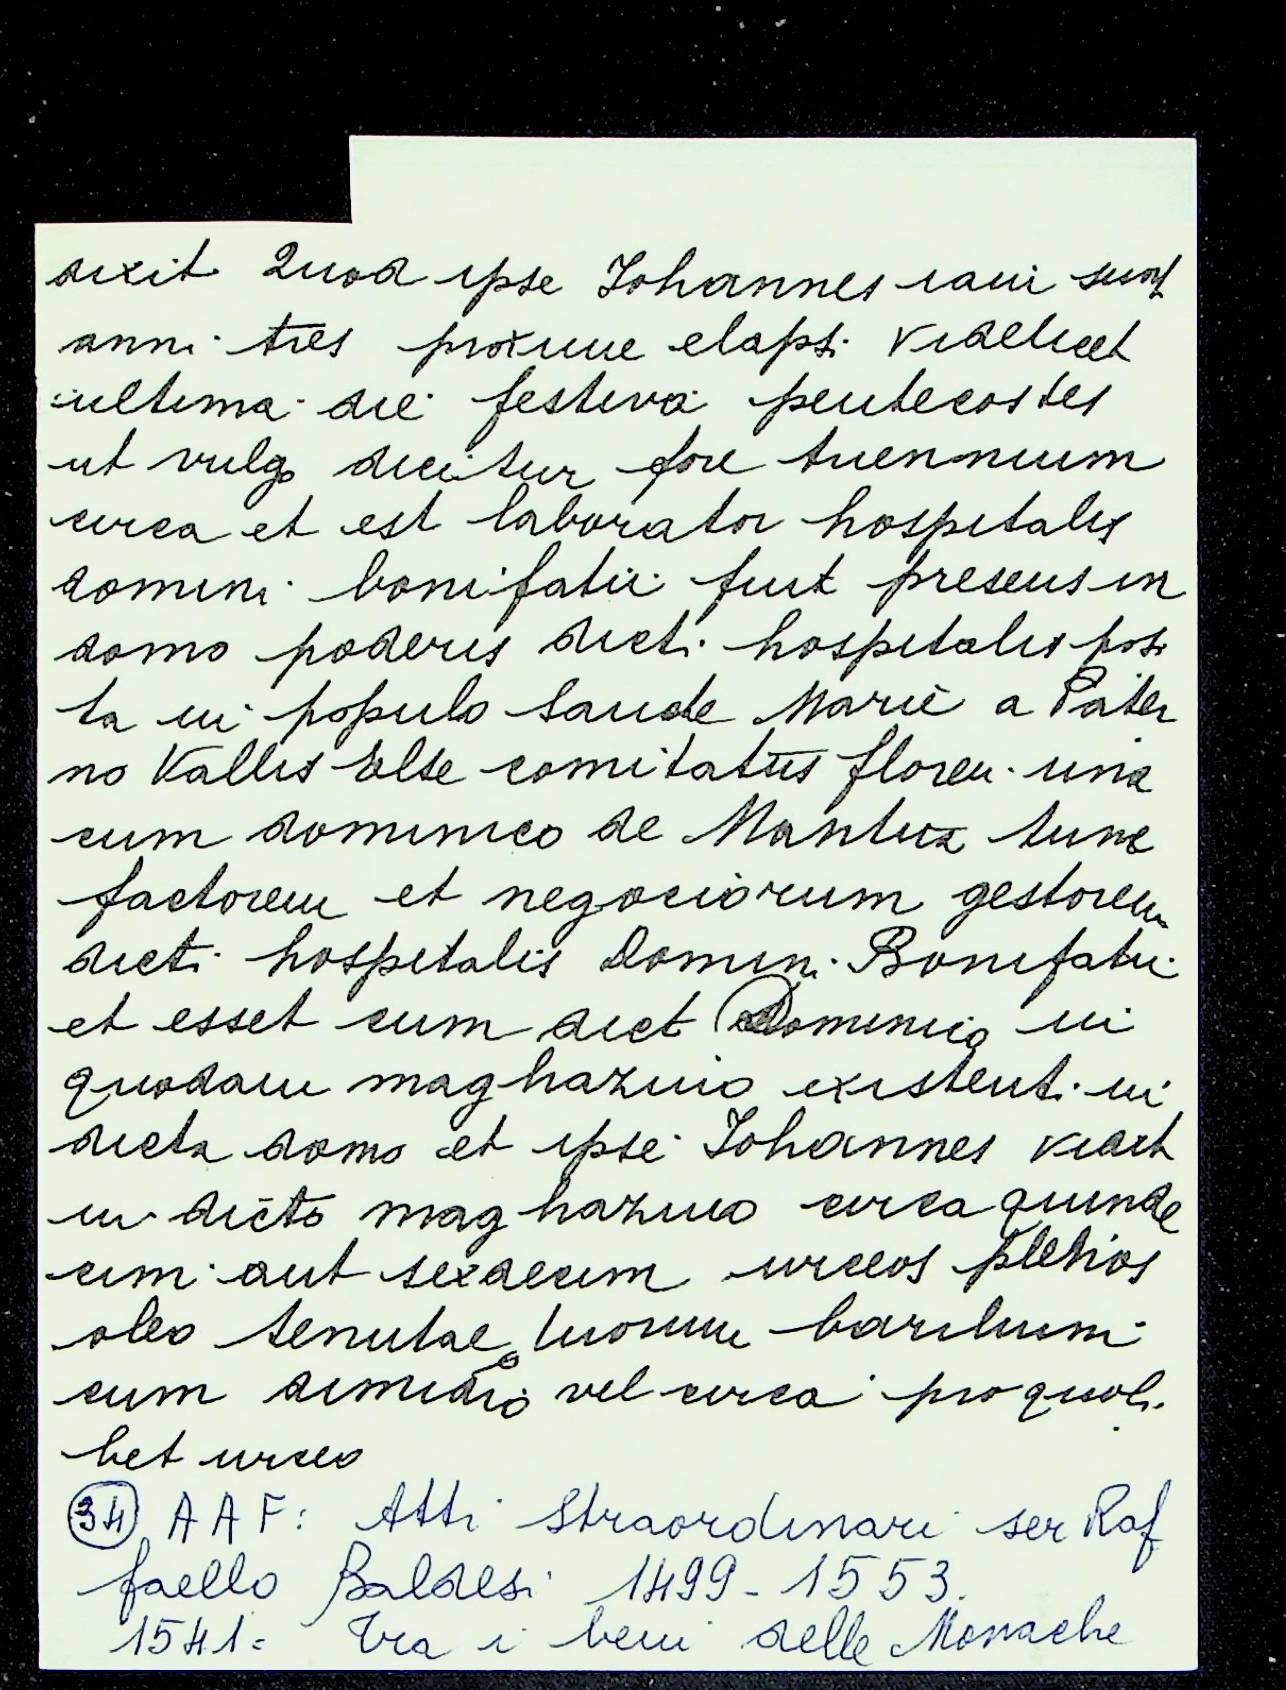 dixit Quod ipse Johannes iam sunt
anni tres proxime elapsi videlicet
ultima die festiva pentecostes
ut vulgo dicitur fore triennium
circa et est laborator hospitalis
domini bonifatii fuit presens in
domo poderis dicti hospitalis posi
ta in populo Sancte Marie a Pater
no Vallis Else comitatus floren. una
cum dominico de Mantua tunc
factorem et negociorum gestorem
dicti hospitalis Domini Bonifatii
et esset cum dict Dominico in
quodam maghazino existenti in
dicta domo et ipse Johannes vidit
in dicto maghazino circa quinde
cim aut sexdecim urceos plenos
oleo tenutae barilium
cum dimidio vel circa pro quoli
bet urceo
(34) AAF: Atti Straordinari ser Raf
faello Baldesi 1499-1553.
1541= Tra i beni delle Monache